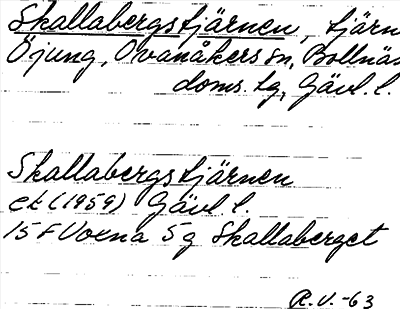 Skallabergstjärnen, tjärn
Öjung, Ovanåkers sn, Bollnäs
doms. lg, Gävl. l.
Skallabergstjärnen
ek (1959) Gävl l.
15 F Voxna 5 g Skallaberget
R.V. -63